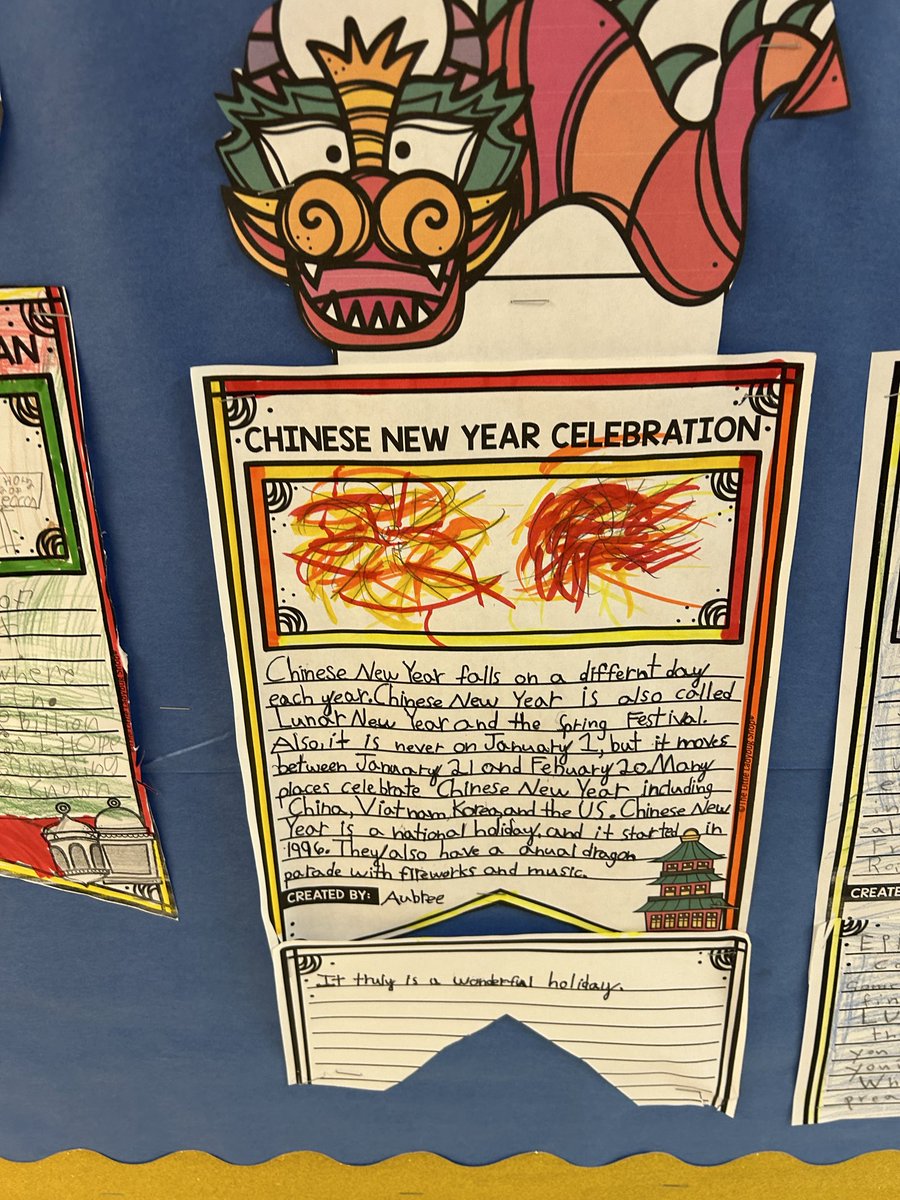 AN
HOLY
OF
MECCA
of
where
the
billion
known
CHINESE NEW YEAR CELEBRATION
Chinese New Year falls on a differnt day
each year. Chinese New Year is also called
Lunar New Year and the Spring Festival.
Also, it is never on January 1, but it moves
between January 21 and Febuary 20. Many
places celebrate Chinese New Year including
China, Viatnam, Korea, and the US. Chinese New
Year is a national holiday, and it started in
1996. They also have a anual dragon
parade with fireworks and music.
CREATED BY: Aubree
It truly is a wonderful holiday.
CREATE
you
your
Wh
prea